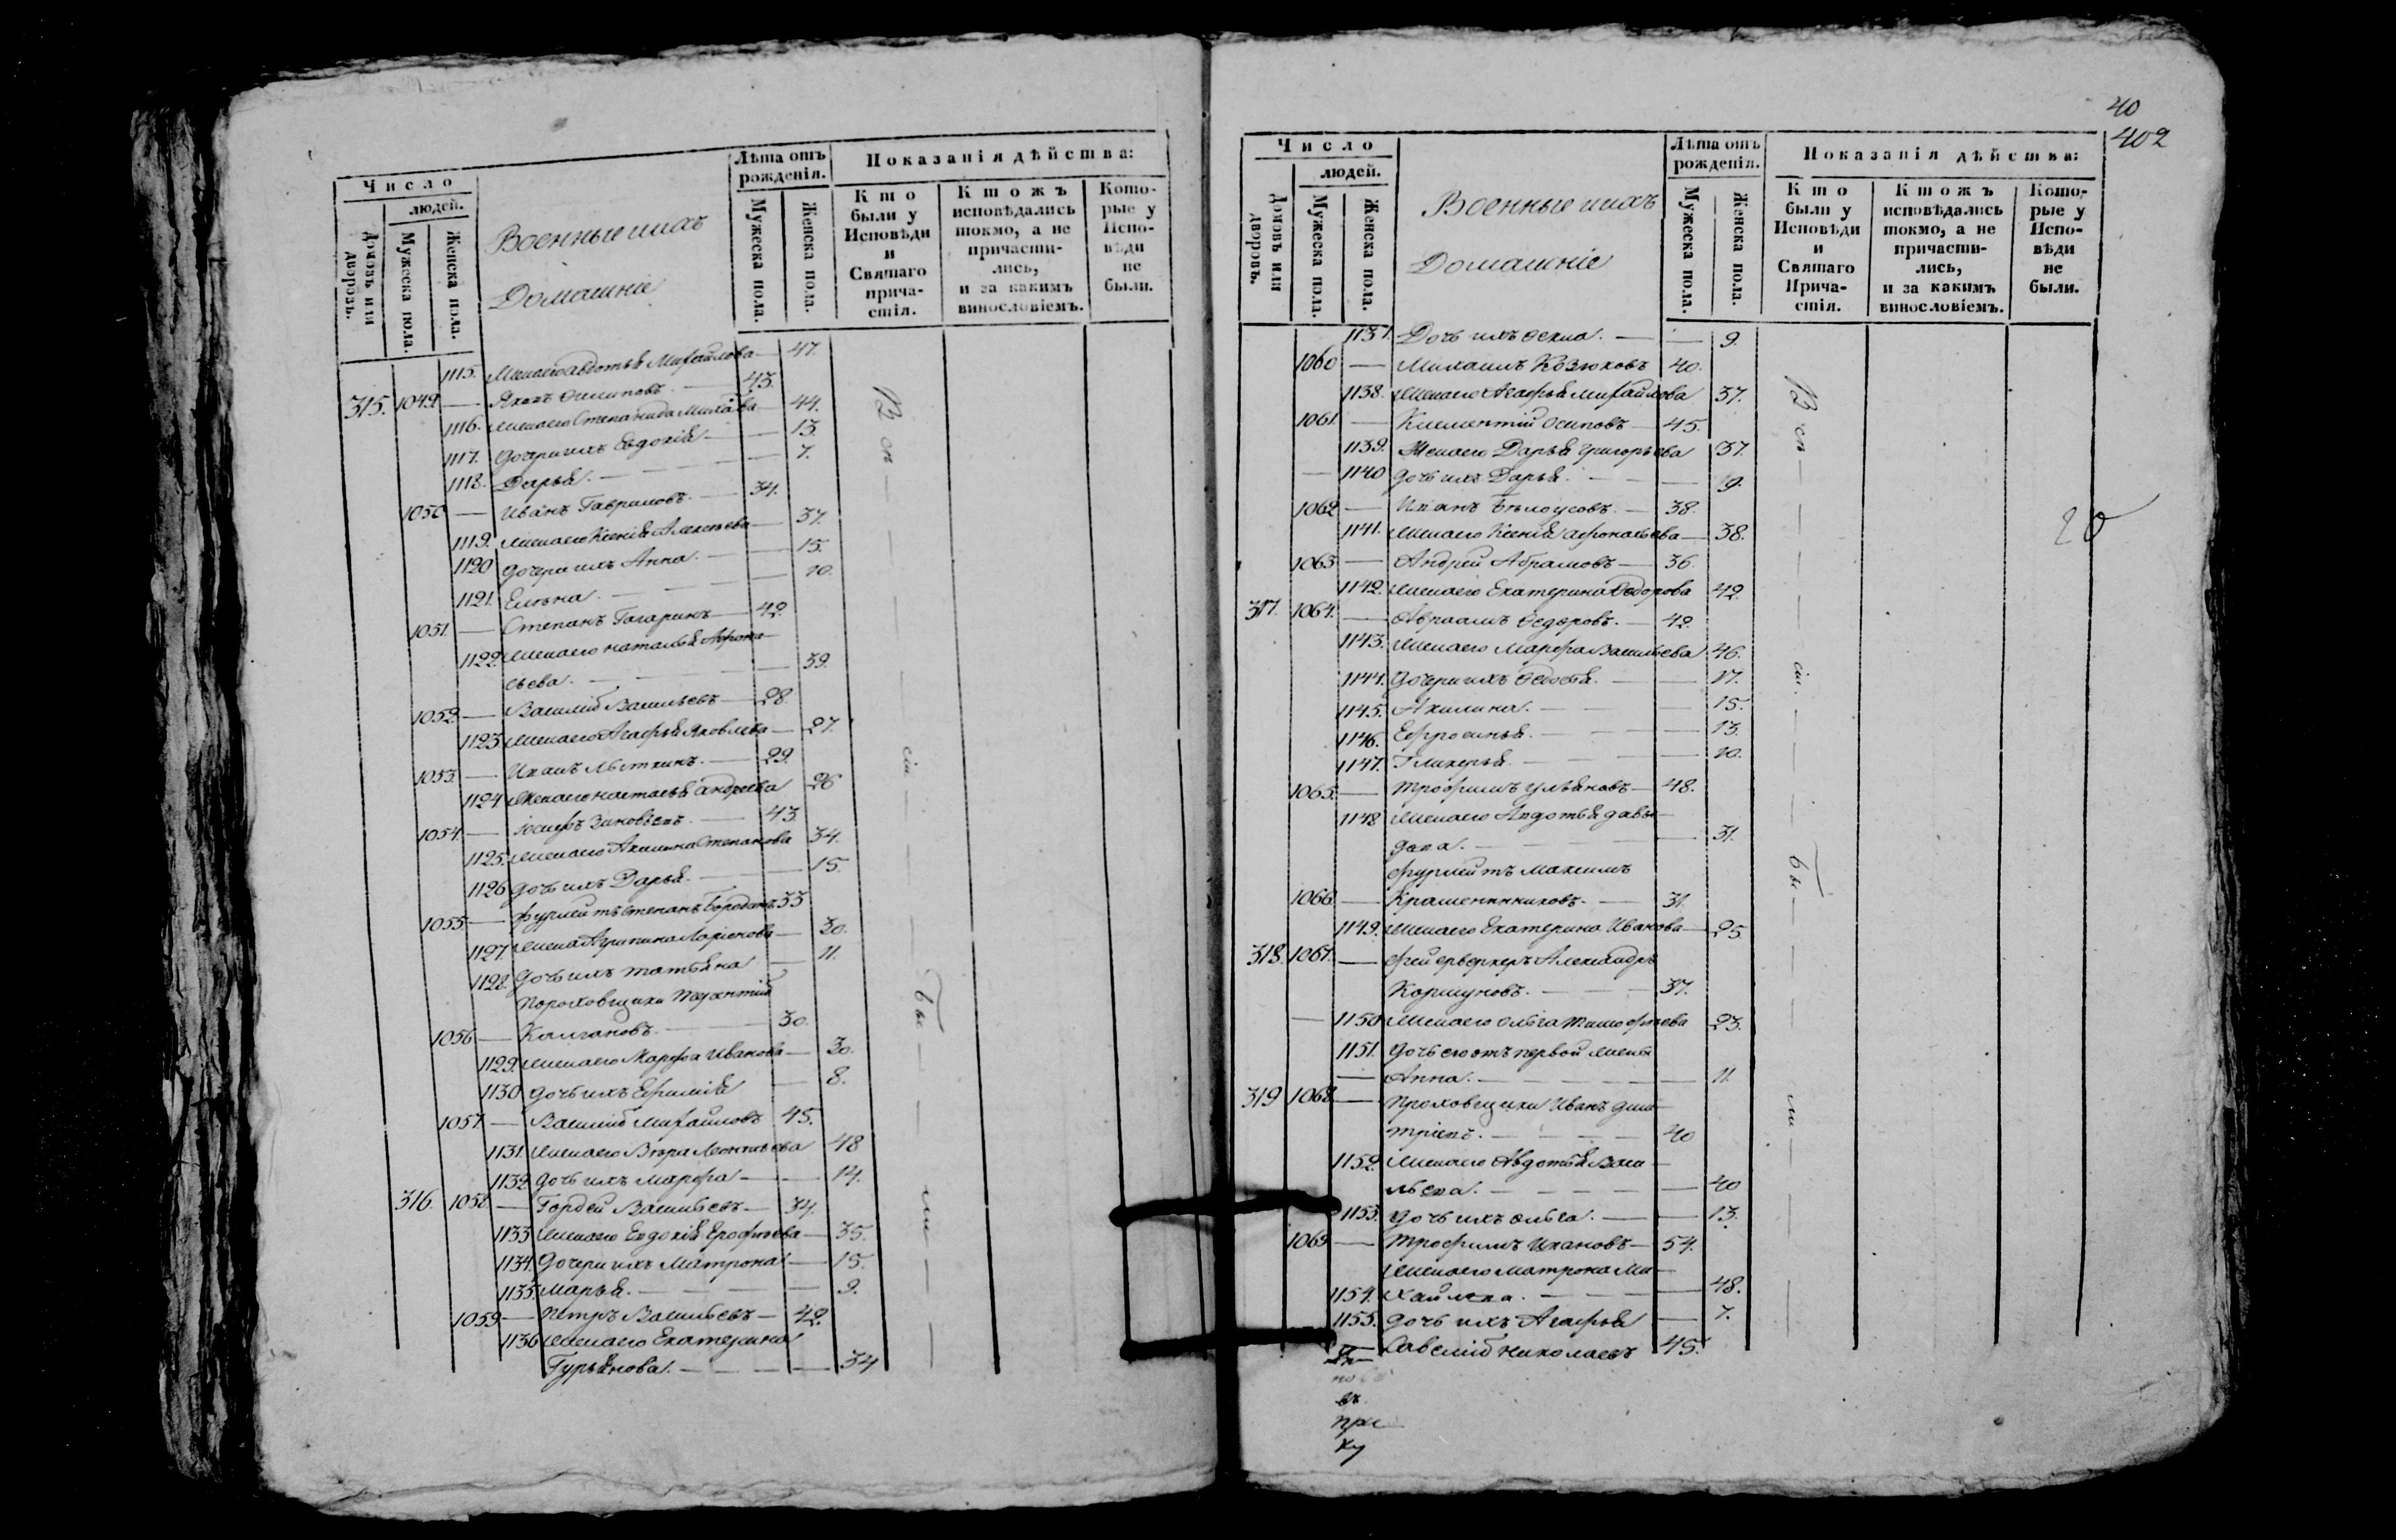 Число
людей.
Домовъ или дворовъ.
Мужеска пола.
Женска пола.
Военные ихъ
Домашніе
Лѣта отъ рожденія.
Мужеска пола.
Женска пола.
Показанія дѣйства:
Кто были у Исповѣди и Святаго причастія.
Ктожъ исповѣдались токмо, а не причастились, и за какимъ винословіемъ.
Которые у Исповѣди не были.
1115. Жена его Авдотья Михайлова — 47.
315. 1049. — Яковъ Филиповъ. — 43.
1116. Жена его Степанида — 44.
1117. Дочери ихъ Евдокія — — 13.
1118. Дарья. — — — 7.
1050 — Иванъ Гавриловъ. — 34.
1119. Жена его Ксенія Алексѣева — 37.
1120 Дочери ихъ Анна. — — 15.
1121. Елена. — — — 10.
1051. — Степанъ Гагаринъ — 42.
1122. Жена его Наталья Афона-
сьева. — — — 39.
1052. — Василій Васильевъ — 28.
1123 Жена его Агафья Яковлева — 27.
1053. — Иванъ — 29.
1124 Жена его Настасья Андреева 26
1054. — Іосифъ Зиновьевъ. — 43.
1125. Жена его Акилина Степанова 34.
1126 Дочь ихъ Дарья. — — 15.
1055 — Фурлейтъ Степанъ 33
1127 Жена Агрипина Ларіонова — 30.
1128. Дочь ихъ Татьяна — 11.
Пороховщики
1056 — Колгановъ. — — 30.
1129. Жена его Марфа Иванова — 30.
1130 Дочь ихъ Ефимія — 8.
1057. — Василій Михайловъ 45.
1131. Жена его Вѣра Леонтьева 48
1132. Дочь ихъ Марфа — — 14.
316. 1058. — Гордей Васильевъ — 34.
1133 Жена его Евдокія Ерофѣева — 35.
1134. Дочери ихъ Матрона — 15.
1135. Марья. — — — 9.
1059 — Петръ Васильевъ — 42.
1136 Жена его Екатерина
Гурьянова. — — — 34
Всѣ — сіи — бы — ли —
40
402
Число
людей.
Домовъ или дворовъ.
Мужеска пола.
Женска пола.
Военные ихъ
Домашніе
Лѣта отъ рожденія.
Мужеска пола.
Женска пола.
Показанія дѣйства:
Кто были у Исповѣди и Святаго Причастія.
Ктожъ исповѣдались токмо, а не причастились, и за какимъ винословіемъ.
Которые у Исповѣди не были.
1137. Дочь ихъ Фекла. — — 9.
1060 — Михаилъ Козюковъ 40.
1138. Жена его Агафья Михайлова 37.
1061. — Климентій Осиповъ — 45.
1139. Жена его Дарья Григорьева 37.
— 1140 Дочь ихъ Дарья. — — 9.
1062 — Иванъ Бѣлоусовъ. — 38.
1141. Жена его Ксенія Афонасьева — 38.
1063 — Андрей Абрамовъ — 36.
1142. Жена его Екатерина Федорова 42.
317. 1064. — Авраамъ Федоровъ. — 42.
1143. Жена его Марфа Васильева 46.
1144. Дочери ихъ Федосья. — — 17.
1145. Акилина. — — — 15.
1146. Ефросинья. — — — 13.
1147. Гликерья. — — — 10.
1065. — Трофимъ Ульяновъ — 48.
1148 Жена его Авдотья Давы-
дова. — — — 31.
Фурлейтъ Максимъ
1066 — Крашенинниковъ. — 31.
1149. Жена его Екатерина Иванова — 25
318. 1067. — Фейерверкеръ Александръ
Коршуновъ. — — 37.
— 1150 Жена его Ольга Тимофѣева 23.
1151. Дочь его отъ первой жены
— Анна. — — — — 11.
319 1068 — Пороховщики Иванъ Дми-
тріевъ. — — — 40
1152. Жена его Авдотья Васи-
льева. — — — 40
1153. Дочь ихъ Ольга. — — 13.
1069 — Трофимъ Ивановъ — 54.
Жена его Матрона Ми-
1154. хайлова. — — — 48.
1155. Дочь ихъ Агафья — 7.
Савелій Николаевъ 45.
Всѣ — сіи — бы — ли —
20
въ
при
ку